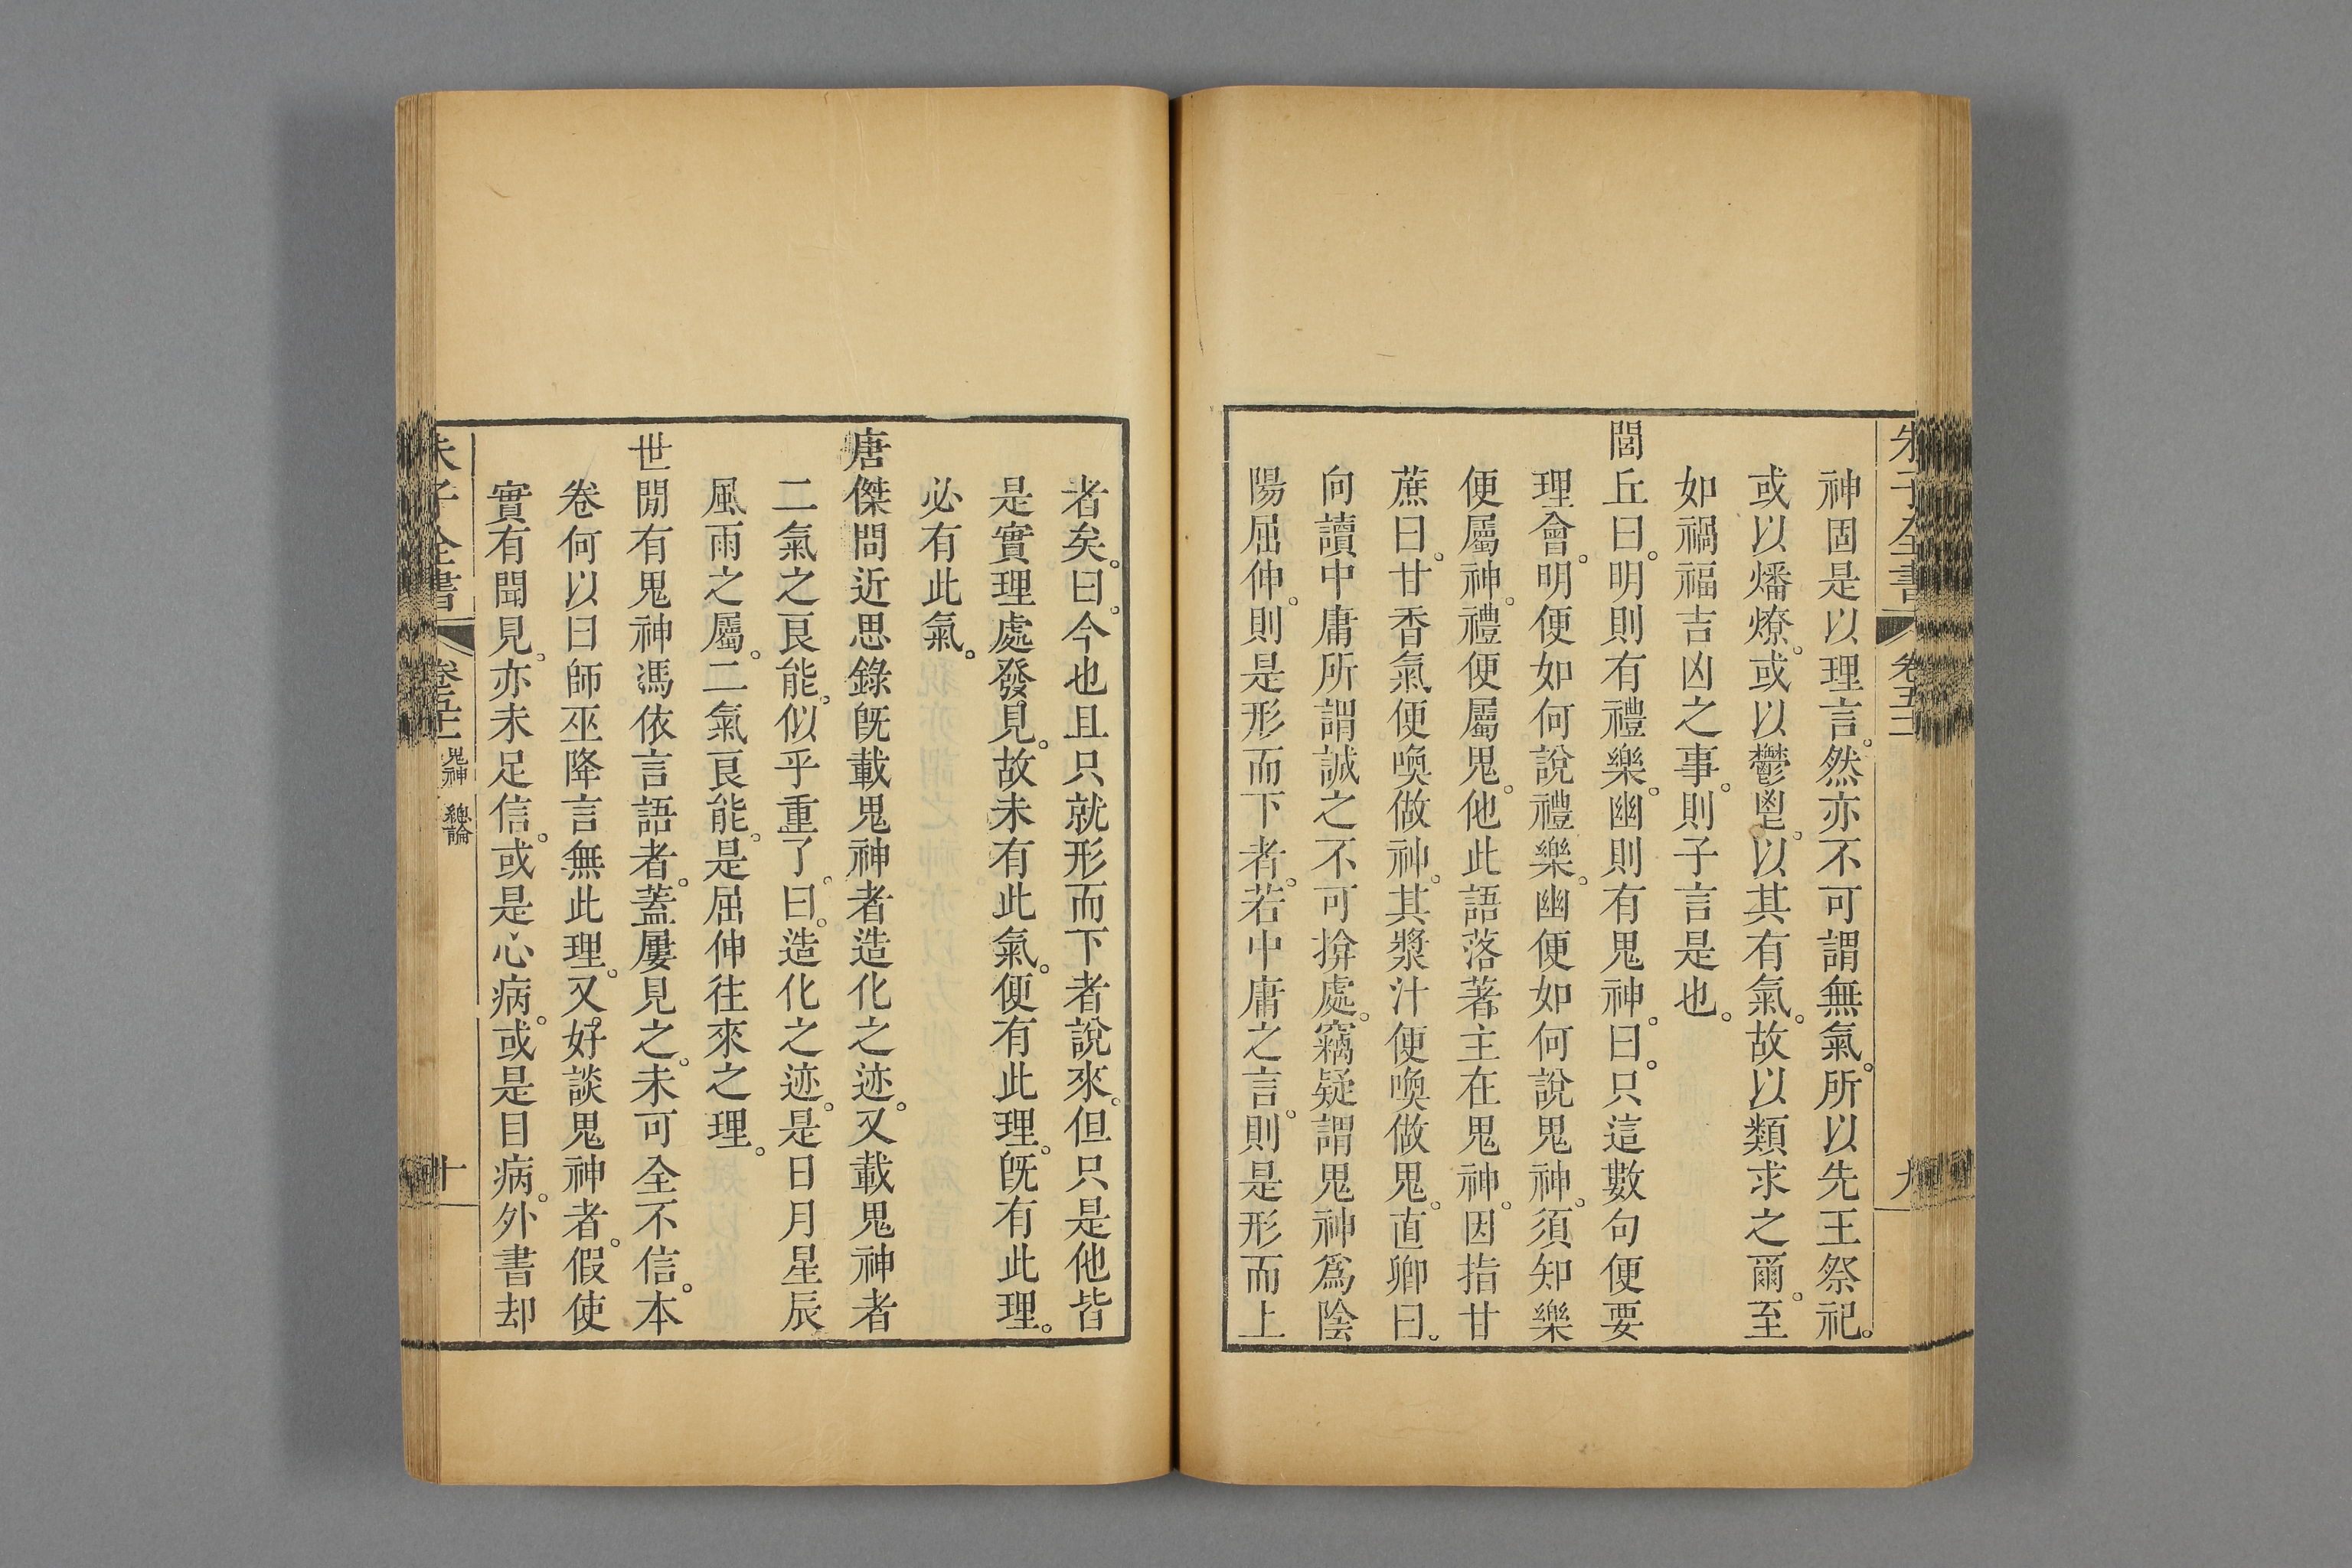 朱子全書
卷五十一
九
神固是以理言。然亦不可謂無氣。所以先王祭祀。
或以燔燎。或以鬱鬯。以其有氣。故以類求之爾。至
如禍福吉凶之事。則子言是也。
閭丘曰。明則有禮樂。幽則有鬼神。曰。只這數句便要
理會。明便如何說禮樂。幽便如何說鬼神。須知樂
便屬神。禮便屬鬼。他此語落著主在鬼神。因指甘
蔗曰。甘香氣便喚做神。其漿汁便喚做鬼。直卿曰。
向讀中庸所謂誠之不可揜處。竊疑謂鬼神為陰
陽屈伸。則是形而下者。若中庸之言。則是形而上
者矣。曰。今也且只就形而下者說來。但只是他皆
是實理處發見。故未有此氣。便有此理。旣有此理。
必有此氣。
唐傑問近思錄旣載鬼神者造化之迹。又載鬼神者
二氣之良能。似乎重了。曰。造化之迹。是日月星辰
風雨之屬。二氣良能。是屈伸往來之理。
世閒有鬼神馮依言語者。蓋屢見之。未可全不信。本
卷何以曰師巫降言無此理。又好談鬼神者。假使
實有聞見。亦未足信。或是心病。或是目病。外書却
朱子全書
卷五十一
鬼神 總論
十